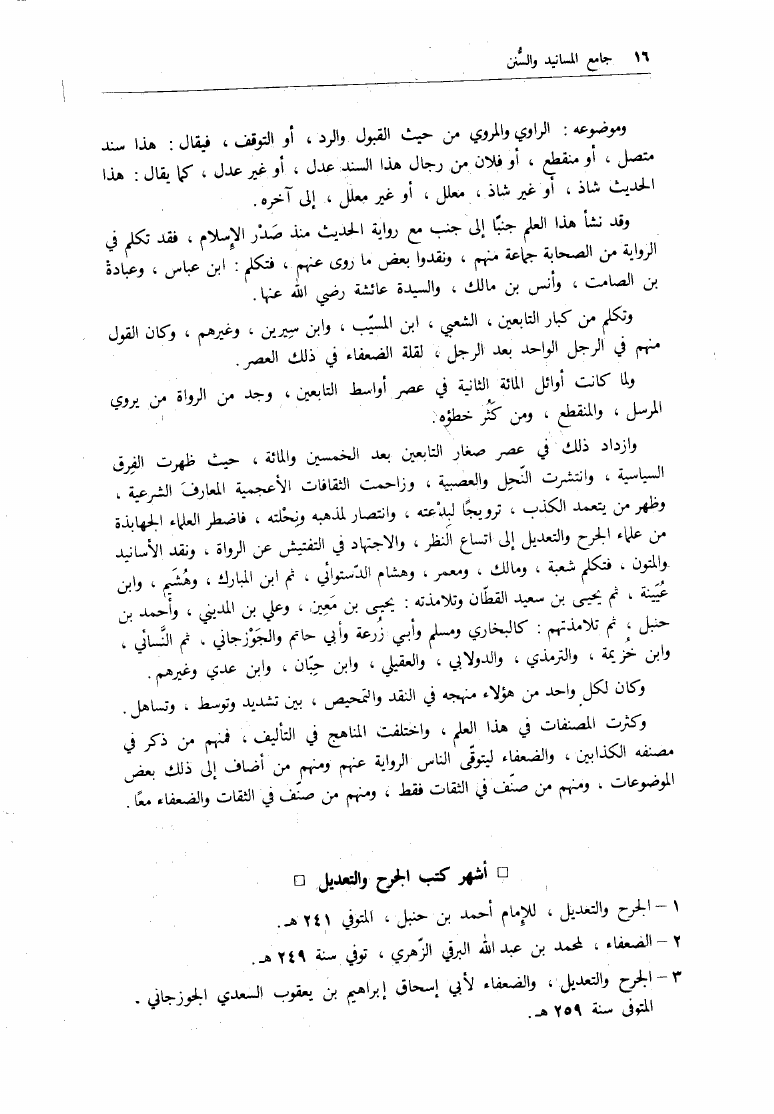 ١٦ جامع المسانيد والسُّنن
وموضوعه : الراوي والمروي من حيث القبول والرد ، أو التوقف ، فيقال : هذا سند
متصل ، أو منقطع ، أو فلان من رجال هذا السند عدل ، أو غير عدل ، كما يقال : هذا
الحديث شاذ ، أو غير شاذ ، معلل ، أو غير معلل ، إلى آخره .
وقد نشأ هذا العلم جنبًا إلى جنب مع رواية الحديث منذ صَدْر الإسلام ، فقد تكلم في
الرواية من الصحابة جماعة منهم ، ونقدوا بعض ما روى عنهم ، فتكلم : ابن عباس ، وعبادة
بن الصامت ، وأنس بن مالك ، والسيدة عائشة رضي الله عنها .
وتكلم من كبار التابعين ، الشعبي ، ابن المسيّب ، وابن سِيرين ، وغيرهم ، وكان القول
منهم في الرجل الواحد بعد الرجل ، لقلة الضعفاء في ذلك العصر .
ولما كانت أوائل المائة الثانية في عصر أواسط التابعين ، وجد من الرواة من يروي
المرسل ، والمنقطع ، ومن كَثُر خطؤه .
وازداد ذلك في عصر صغار التابعين بعد الخمسين والمائة ، حيث ظهرت الفِرق
السياسية ، وانتشرت النِّحل والعصبية ، وزاحمت الثقافات الأعجمية المعارفَ الشرعية ،
وظهر من يتعمد الكذب ، ترويجًا لبِدْعته ، وانتصار لمذهبه ونِحْلته ، فاضطر العلماء الجهابذة
من علماء الجرح والتعديل إلى اتساع النظر ، والاجتهاد في التفتيش عن الرواة ، ونقد الأسانيد
والمتون ، فتكلم شعبة ، ومالك ، ومعمر ، وهشام الدّستوائي ، ثم ابن المبارك ، وهُشَيم ، وابن
عُيَينة ، ثم يحيـى بن سعيد القطّان وتلامذته : يحيـى بن مَعِين ، وعلي بن المديني ، وأحمد بن
حنبل ، ثم تلامذتهم : كالبخاري ومسلم وأبـي زُرعة وأبي حاتم والجَوْزجاني ، ثم النَّسائي ،
وابن خُزيمة ، والترمذي ، والدولابي ، والعقيلي ، وابن حِبّان ، وابن عدي وغيرهم .
وكان لكل واحد من هؤلاء منهجه في النقد والتمحيص ، بين تشديد وتوسط ، وتساهل .
وكثرت المصنفات في هذا العلم ، واختلفت المناهج في التأليف ، فمنهم من ذكر في
مصنفه الكذابين ، والضعفاء ليتوقّى الناس الرواية عنهم ومنهم من أضاف إلى ذلك بعض
الموضوعات ، ومنهم من صنّف في الثقات فقط ، ومنهم من صنّف في الثقات والضعفاء معًا .
□ أشهر كتب الجرح والتعديل □
١ – الجرح والتعديل ، للإمام أحمد بن حنبل ، المتوفي ٢٤١ هـ .
٢ – الضعفاء ، لمحمد بن عبد الله البرقي الزّهري ، توفي سنة ٢٤٩ هـ .
٣ – الجرح والتعديل ، والضعفاء لأبي إسحاق إبراهيم بن يعقوب السعدي الجوزجاني .
المتوفى سنة ٢٥٩ هـ .